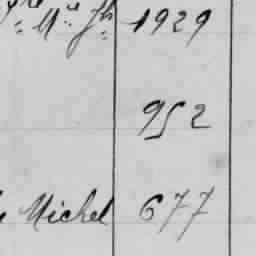 Mie Jh 1929
952
Michel 677